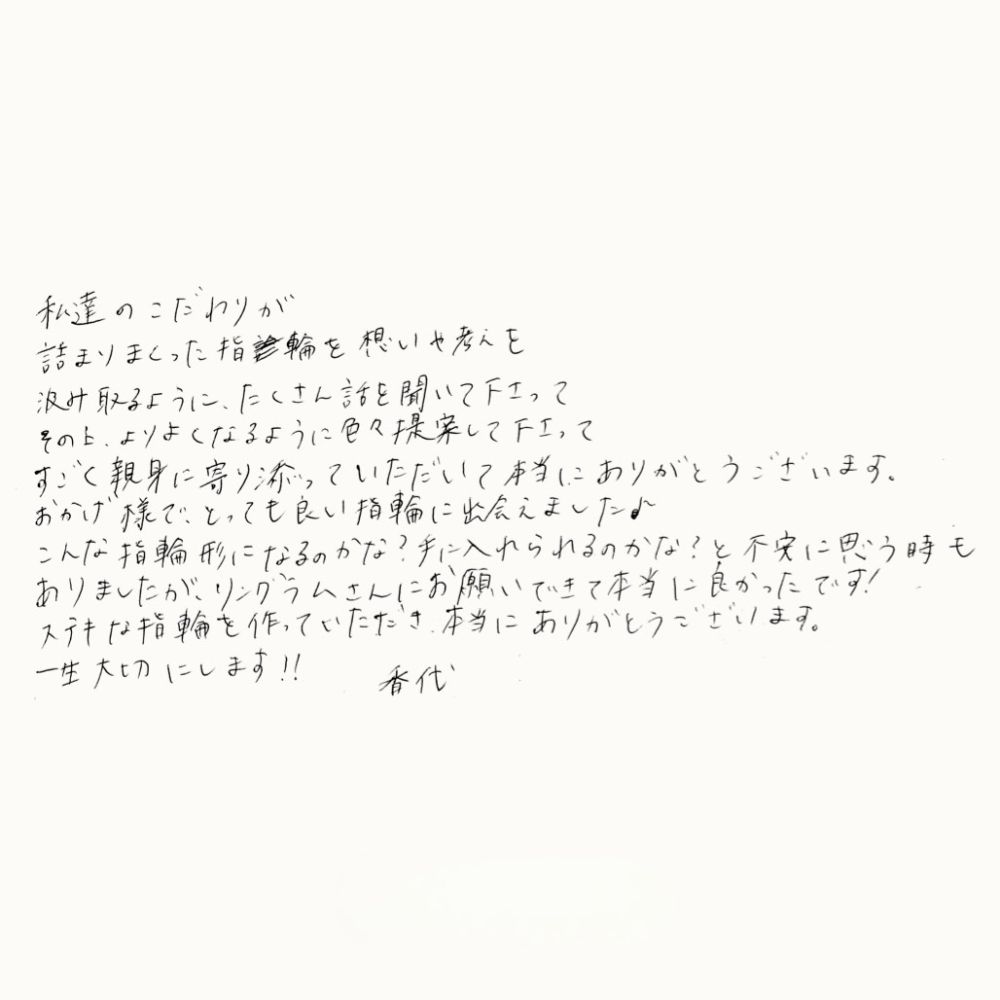 私達のこだわりが
詰まりまくった指輪を想いや考えを
汲み取るように、たくさん話を聞いて下さって
その上、よりよくなるように色々提案して下さって
すごく親身に寄り添っていただいて本当にありがとうございます。
おかげ様で、とっても良い指輪に出会えました♪
こんな指輪形になるのかな?手に入れられるのかな?と不安に思う時も
ありましたが、リングラムさんにお願いできて本当に良かったです!
ステキな指輪を作っていただき、本当にありがとうございます。
一生大切にします!!
香代